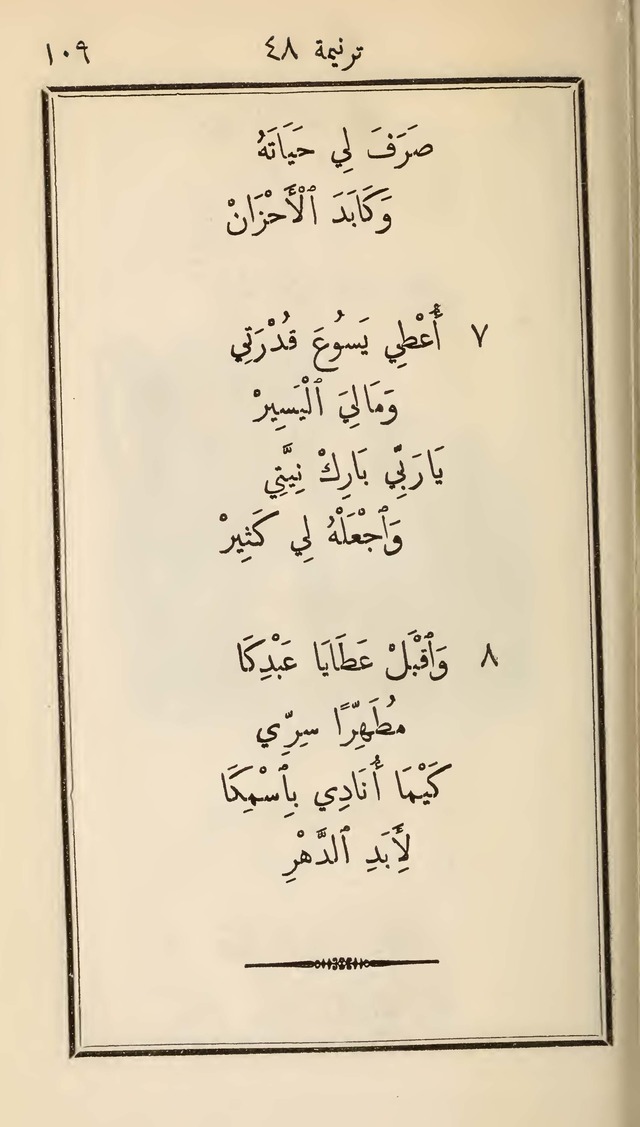 ترنيمة ٤٨ ١٠٩
صَرَفَ لِي حَيَاتَهُ
وَكَابَدَ ٱلْأَحْزَانْ
٧ أُعْطِي يَسُوعَ قُدْرَتِي
وَمَالِيَ ٱلْيَسِيرْ
يَا رَبِّي بَارِكْ نِيَّتِي
وَٱجْعَلْهُ لِي كَثِيرْ
٨ وَٱقْبَلْ عَطَايَا عَبْدِكَا
مُطَهِّرًا سِرِّي
كَيْمَا أُنَادِي بِٱسْمِكَا
لِأَبَدِ ٱلدَّهْرِ